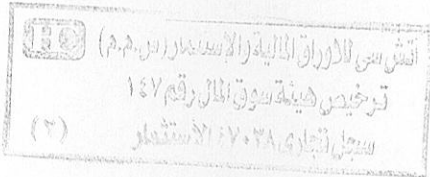 اتش سي للاوراق المالية والاستثمار (س.م.م) HC
ترخيص هيئة سوق المال رقم ١٤٧
سجل تجارى ٧٠٣٨ الأستثمار
(٣)